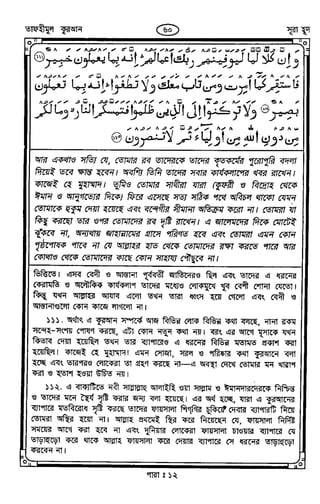 তাফহীমুল কুরআন
৬০
সূরা হূদ
وَاِنَّ كُلًّا لَّمَّا لَيُوَفِّيَنَّهُمْ رَبُّكَ اَعْمَالَهُمْ ۭ اِنَّهٗ بِمَا يَعْمَلُوْنَ خَبِيْرٌ
فَاسْتَقِمْ كَمَآ اُمِرْتَ وَمَنْ تَابَ مَعَكَ وَلَا تَطْغَوْا ۭ اِنَّهٗ بِمَا تَعْمَلُوْنَ
بَصِيْرٌ وَلَا تَرْكَنُوْٓا اِلَى الَّذِيْنَ ظَلَمُوْا فَتَمَسَّكُمُ النَّارُ ۙ وَمَا لَكُمْ
مِّنْ دُوْنِ اللّٰهِ مِنْ اَوْلِيَآءَ ثُمَّ لَا تُنْصَرُوْنَ
আর একথাও সত্যি যে, তোমার রব তাদেরকে তাদের কৃতকর্মের পুরোপুরি বদলা
দিয়েই তবে ক্ষান্ত হবেন। অবশ্যি তিনি তাদের সবার কার্যকলাপের খবর রাখেন।
কাজেই হে মুহাম্মাদ! তুমিও তোমার সাথীরা যারা (কুফরী ও বিদ্রোহ থেকে
ঈমান ও আনুগত্যের দিকে) ফিরে এসেছে সত্য সঠিক পথে অবিচল থাকো যেমন
তোমাকে হুকুম দেয়া হয়েছে এবং বন্দেগীর সীমানা অতিক্রম করো না। তোমরা যা
কিছু করছো তার ওপর তোমাদের রব দৃষ্টি রাখেন। এ জালেমদের দিকে মোটেই
ঝুঁকবে না, অন্যথায় জাহান্নামের গ্রাসে পরিণত হবে এবং তোমরা এমন কোন
পৃষ্ঠপোষক পাবে না যে আল্লাহর হাত থেকে তোমাদের রক্ষা করতে পারে আর
কোথাও থেকে তোমাদের কাছে কোন সাহায্য পৌঁছুবে না।
ভিত্তিতে। এসব বেদী ও আস্তানা পূর্ববর্তী জাতিদেরও ছিল এবং তাদের এ ধরনের
কেরামতি ও অলৌকিক কার্যকলাপ তাদের মধ্যেও লোকমুখে খুব বেশী শোনা যেতো।
কিন্তু যখন আল্লাহর আযাব এলো তখন তারা ধ্বংস হয়ে গেলো এবং বেদী ও
আস্তানাগুলো কোন কাজে লাগলো না।
১১১. অর্থাৎ এ কুরআন সম্পর্কে আজ বিভিন্ন লোক বিভিন্ন কথা বলছে, নানা রকম
সন্দেহ-সংশয় পোষণ করছে, এটা কোন নতুন কথা নয়। বরং এর আগে মূসাকে যখন
কিতাব দেয়া হয়েছিল তখন তার ব্যাপারেও এ ধরনের বিভিন্ন মতামত প্রকাশ করা
হয়েছিল। কাজেই হে মুহাম্মাদ! এমন সোজা, সরল ও পরিষ্কার কথা কুরআনে বলা
হচ্ছে এবং তারপরও লোকেরা তা গ্রহণ করছে না—এ অবস্থা দেখে তোমার মন খারাপ
করা ও হতাশ হওয়া উচিত নয়।
১১২. এ বাক্যটিতে নবী সাল্লাল্লাহু আলাইহি ওয়া সাল্লাম ও ঈমানদারদেরকে নিশ্চিন্ত
ও তাদের মনে স্থৈর্য সৃষ্টি করার জন্য বলা হয়েছে। এর অর্থ হচ্ছে, যারা এ কুরআনের
ব্যাপারে মতবিরোধ সৃষ্টি করছে তাদের ফায়সালা শিগগির চুকিয়ে দেবার ব্যাপারটি নিয়ে
তোমরা অস্থির হয়ো না। আল্লাহ প্রথমেই স্থির করে নিয়েছেন যে, ফায়সালা নির্দিষ্ট
সময়ের আগে করা হবে না এবং দুনিয়ার লোকেরা ফায়সালা চাওয়ার ব্যাপারে যে
তাড়াহুড়ো করে থাকে আল্লাহ ফায়সালা করে দেয়ার ব্যাপারে সে ধরনের তাড়াহুড়ো
করবেন না।
পারা : ১২